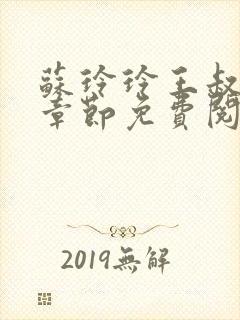 蘇玲玲王叔
章節免費閱
2019無解